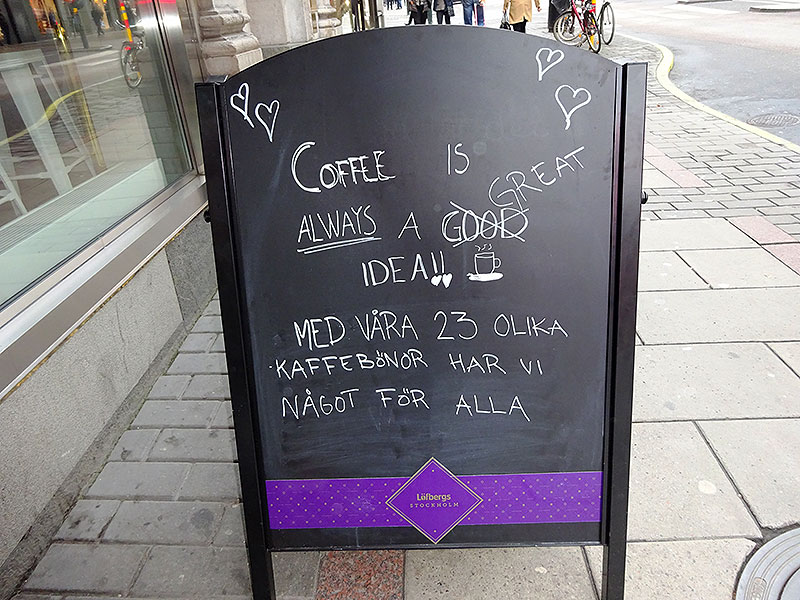 COFFEE IS
ALWAYS A GOOD GREAT
IDEA!!
MED VÅRA 23 OLIKA
KAFFEBÖNOR HAR VI
NÅGOT FÖR ALLA
Löfbergs
STOCKHOLM